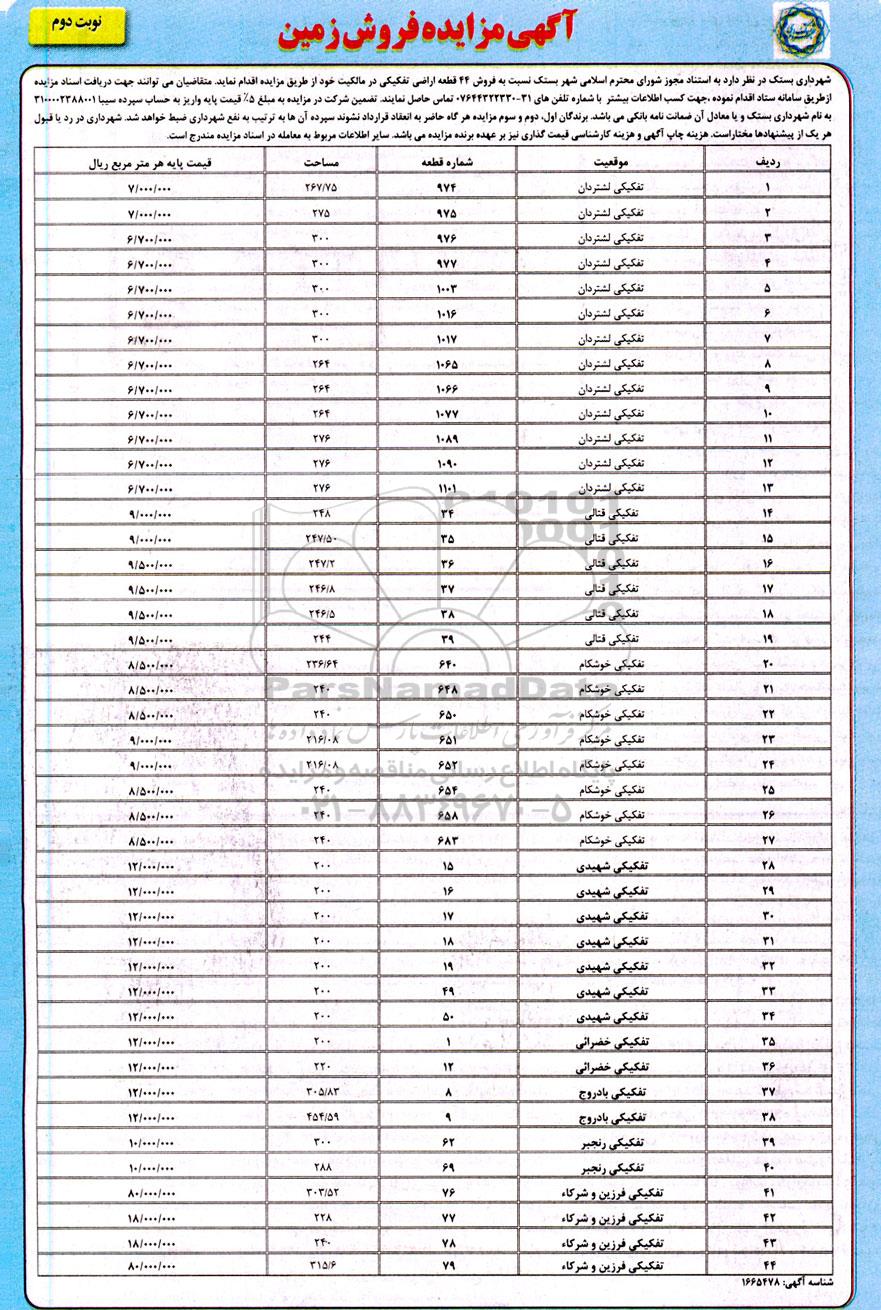 آگهی مزایده فروش زمین
نوبت دوم
شهرداری بستک در نظر دارد به استناد مجوز شورای محترم اسلامی شهر بستک نسبت به فروش ۴۴ قطعه اراضی تفکیکی در مالکیت خود از طریق مزایده اقدام نماید. متقاضیان می توانند جهت دریافت اسناد مزایده
ازطریق سامانه ستاد اقدام نموده ،جهت کسب اطلاعات بیشتر با شماره تلفن های ۳۱-۰۷۶۴۴۳۲۲۳۳۰ تماس حاصل نمایند. تضمین شرکت در مزایده به مبلغ ۵٪ قیمت پایه واریز به حساب سپرده سیبا ۳۱۰۰۰۰۲۳۸۸۰۰۱
به نام شهرداری بستک و یا معادل آن ضمانت نامه بانکی می باشد. برندگان اول، دوم و سوم مزایده هر گاه حاضر به انعقاد قرارداد نشوند سپرده آن ها به ترتیب به نفع شهرداری ضبط خواهد شد. شهرداری در رد یا قبول
هر یک از پیشنهادها مختاراست. هزینه چاپ آگهی و هزینه کارشناسی قیمت گذاری نیز بر عهده برنده مزایده می باشد. سایر اطلاعات مربوط به معامله در اسناد مزایده مندرج است.
ردیف موقعیت شماره قطعه مساحت قیمت پایه هر متر مربع ریال
۱ تفکیکی لشتردان ۹۷۴ ۲۶۷/۷۵ ۷/۰۰۰/۰۰۰
۲ تفکیکی لشتردان ۹۷۵ ۲۷۵ ۷/۰۰۰/۰۰۰
۳ تفکیکی لشتردان ۹۷۶ ۳۰۰ ۶/۷۰۰/۰۰۰
۴ تفکیکی لشتردان ۹۷۷ ۳۰۰ ۶/۷۰۰/۰۰۰
۵ تفکیکی لشتردان ۱۰۰۳ ۳۰۰ ۶/۷۰۰/۰۰۰
۶ تفکیکی لشتردان ۱۰۱۶ ۳۰۰ ۶/۷۰۰/۰۰۰
۷ تفکیکی لشتردان ۱۰۱۷ ۳۰۰ ۶/۷۰۰/۰۰۰
۸ تفکیکی لشتردان ۱۰۶۵ ۲۶۴ ۶/۷۰۰/۰۰۰
۹ تفکیکی لشتردان ۱۰۶۶ ۲۶۴ ۶/۷۰۰/۰۰۰
۱۰ تفکیکی لشتردان ۱۰۷۷ ۲۶۴ ۶/۷۰۰/۰۰۰
۱۱ تفکیکی لشتردان ۱۰۸۹ ۲۷۶ ۶/۷۰۰/۰۰۰
۱۲ تفکیکی لشتردان ۱۰۹۰ ۲۷۶ ۶/۷۰۰/۰۰۰
۱۳ تفکیکی لشتردان ۱۱۰۱ ۲۷۶ ۶/۷۰۰/۰۰۰
۱۴ تفکیکی قتالی ۳۴ ۲۴۸ ۹/۰۰۰/۰۰۰
۱۵ تفکیکی قتالی ۳۵ ۲۴۷/۵۰ ۹/۰۰۰/۰۰۰
۱۶ تفکیکی قتالی ۳۶ ۲۴۷/۲ ۹/۵۰۰/۰۰۰
۱۷ تفکیکی قتالی ۳۷ ۲۴۶/۸ ۹/۵۰۰/۰۰۰
۱۸ تفکیکی قتالی ۳۸ ۲۴۶/۵ ۹/۵۰۰/۰۰۰
۱۹ تفکیکی قتالی ۳۹ ۲۴۴ ۹/۵۰۰/۰۰۰
۲۰ تفکیکی خوشکام ۶۴۰ ۲۳۶/۶۴ ۸/۵۰۰/۰۰۰
۲۱ تفکیکی خوشکام ۶۴۸ ۲۴۰ ۸/۵۰۰/۰۰۰
۲۲ تفکیکی خوشکام ۶۵۰ ۲۴۰ ۸/۵۰۰/۰۰۰
۲۳ تفکیکی خوشکام ۶۵۱ ۲۱۶/۰۸ ۹/۰۰۰/۰۰۰
۲۴ تفکیکی خوشکام ۶۵۲ ۲۱۶/۰۸ ۹/۰۰۰/۰۰۰
۲۵ تفکیکی خوشکام ۶۵۴ ۲۴۰ ۸/۵۰۰/۰۰۰
۲۶ تفکیکی خوشکام ۶۵۸ ۲۴۰ ۸/۵۰۰/۰۰۰
۲۷ تفکیکی خوشکام ۶۸۳ ۲۴۰ ۸/۵۰۰/۰۰۰
۲۸ تفکیکی شهیدی ۱۵ ۲۰۰ ۱۲/۰۰۰/۰۰۰
۲۹ تفکیکی شهیدی ۱۶ ۲۰۰ ۱۲/۰۰۰/۰۰۰
۳۰ تفکیکی شهیدی ۱۷ ۲۰۰ ۱۲/۰۰۰/۰۰۰
۳۱ تفکیکی شهیدی ۱۸ ۲۰۰ ۱۲/۰۰۰/۰۰۰
۳۲ تفکیکی شهیدی ۱۹ ۲۰۰ ۱۲/۰۰۰/۰۰۰
۳۳ تفکیکی شهیدی ۴۹ ۲۰۰ ۱۲/۰۰۰/۰۰۰
۳۴ تفکیکی شهیدی ۵۰ ۲۰۰ ۱۲/۰۰۰/۰۰۰
۳۵ تفکیکی خضرائی ۱ ۲۰۰ ۱۲/۰۰۰/۰۰۰
۳۶ تفکیکی خضرائی ۱۲ ۲۲۰ ۱۲/۰۰۰/۰۰۰
۳۷ تفکیکی بادروج ۸ ۳۰۵/۸۳ ۱۲/۰۰۰/۰۰۰
۳۸ تفکیکی بادروج ۹ ۴۵۴/۵۹ ۱۲/۰۰۰/۰۰۰
۳۹ تفکیکی رنجبر ۶۲ ۳۰۰ ۱۰/۰۰۰/۰۰۰
۴۰ تفکیکی رنجبر ۶۹ ۲۸۸ ۱۰/۰۰۰/۰۰۰
۴۱ تفکیکی فرزین و شرکاء ۷۶ ۳۰۳/۵۲ ۸۰/۰۰۰/۰۰۰
۴۲ تفکیکی فرزین و شرکاء ۷۷ ۲۲۸ ۱۸/۰۰۰/۰۰۰
۴۳ تفکیکی فرزین و شرکاء ۷۸ ۲۴۰ ۱۸/۰۰۰/۰۰۰
۴۴ تفکیکی فرزین و شرکاء ۷۹ ۳۱۵/۶ ۸۰/۰۰۰/۰۰۰
شناسه آگهی: ۱۶۶۵۴۷۸
ParsNamadData
مرکز فرآوری اطلاعات پارس نماد داده ها
پایگاه اطلاع رسانی مناقصه و مزایده
۰۲۱-۸۸۳۴۹۶۷۰-۵